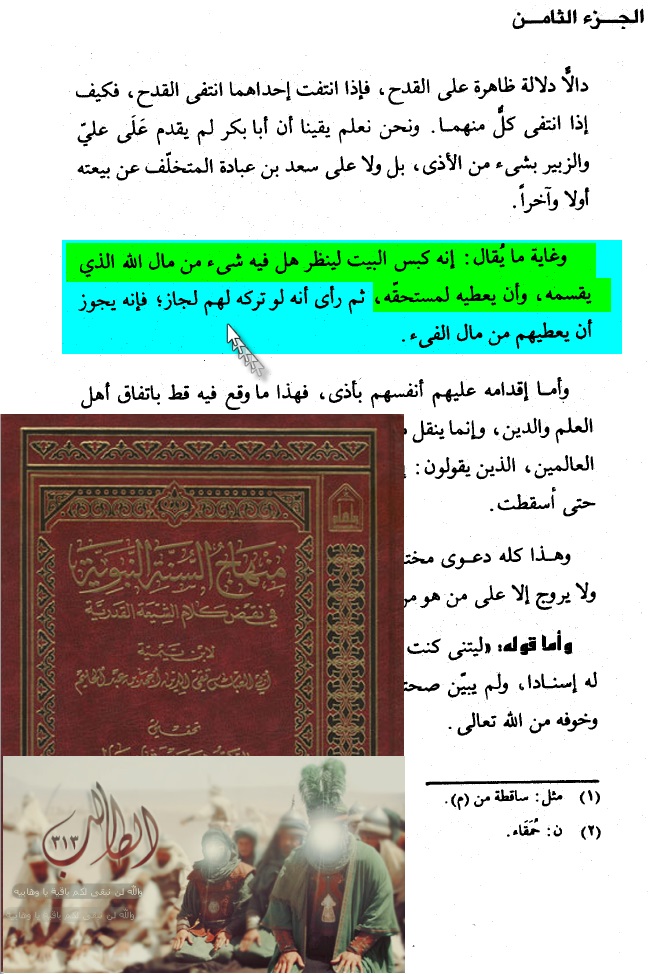 الجـزء الثامـن
دالًّا دلالة ظاهرة على القدح، فإذا انتفت إحداهما انتفى القدح، فكيف
إذا انتفى كلٌّ منهمـا. ونحن نعلم يقينا أن أبا بكر لم يقدم عَلَى عليّ
والزبير بشىء من الأذى، بل ولا على سعد بن عبادة المتخلّف عن بيعته
أولا وآخراً.
وغاية ما يُقال: إنه كبس البيت لينظر هل فيه شىء من مال الله الذي
يقسمه، وأن يعطيه لمستحقّه، ثم رأى أنه لو تركه لهم لجاز؛ فإنه يجوز
أن يعطيهم من مال الفىء.
وأمـا إقدامه عليهم أنفسهم بأذى، فهذا ما وقع فيه قط باتفاق أهل
العلم والدين، وإنما ينقل
العالمين، الذين يقولون:
حتى أسقطت.
وهـذا كله دعـوى
ولا يروج إلا على من هو
وأما قوله: «ليتنى كنت
له إسنادا، ولم يبيّن
وخوفه من الله تعالى.
(١) مثل: ساقطة من (م).
(٢) ن: حُمَقَاء.
منهاج السنة النبوية
في نقض كلام الشيعة القدرية
لابن تيمية
أبي العباس تقي الدين أحمد بن عبد الحليم
تحقيق
الطالب
٣١٣
والله لن تبقى لكم باقية يا وهابية
والله لن تبقى لكم باقية يا وهابية